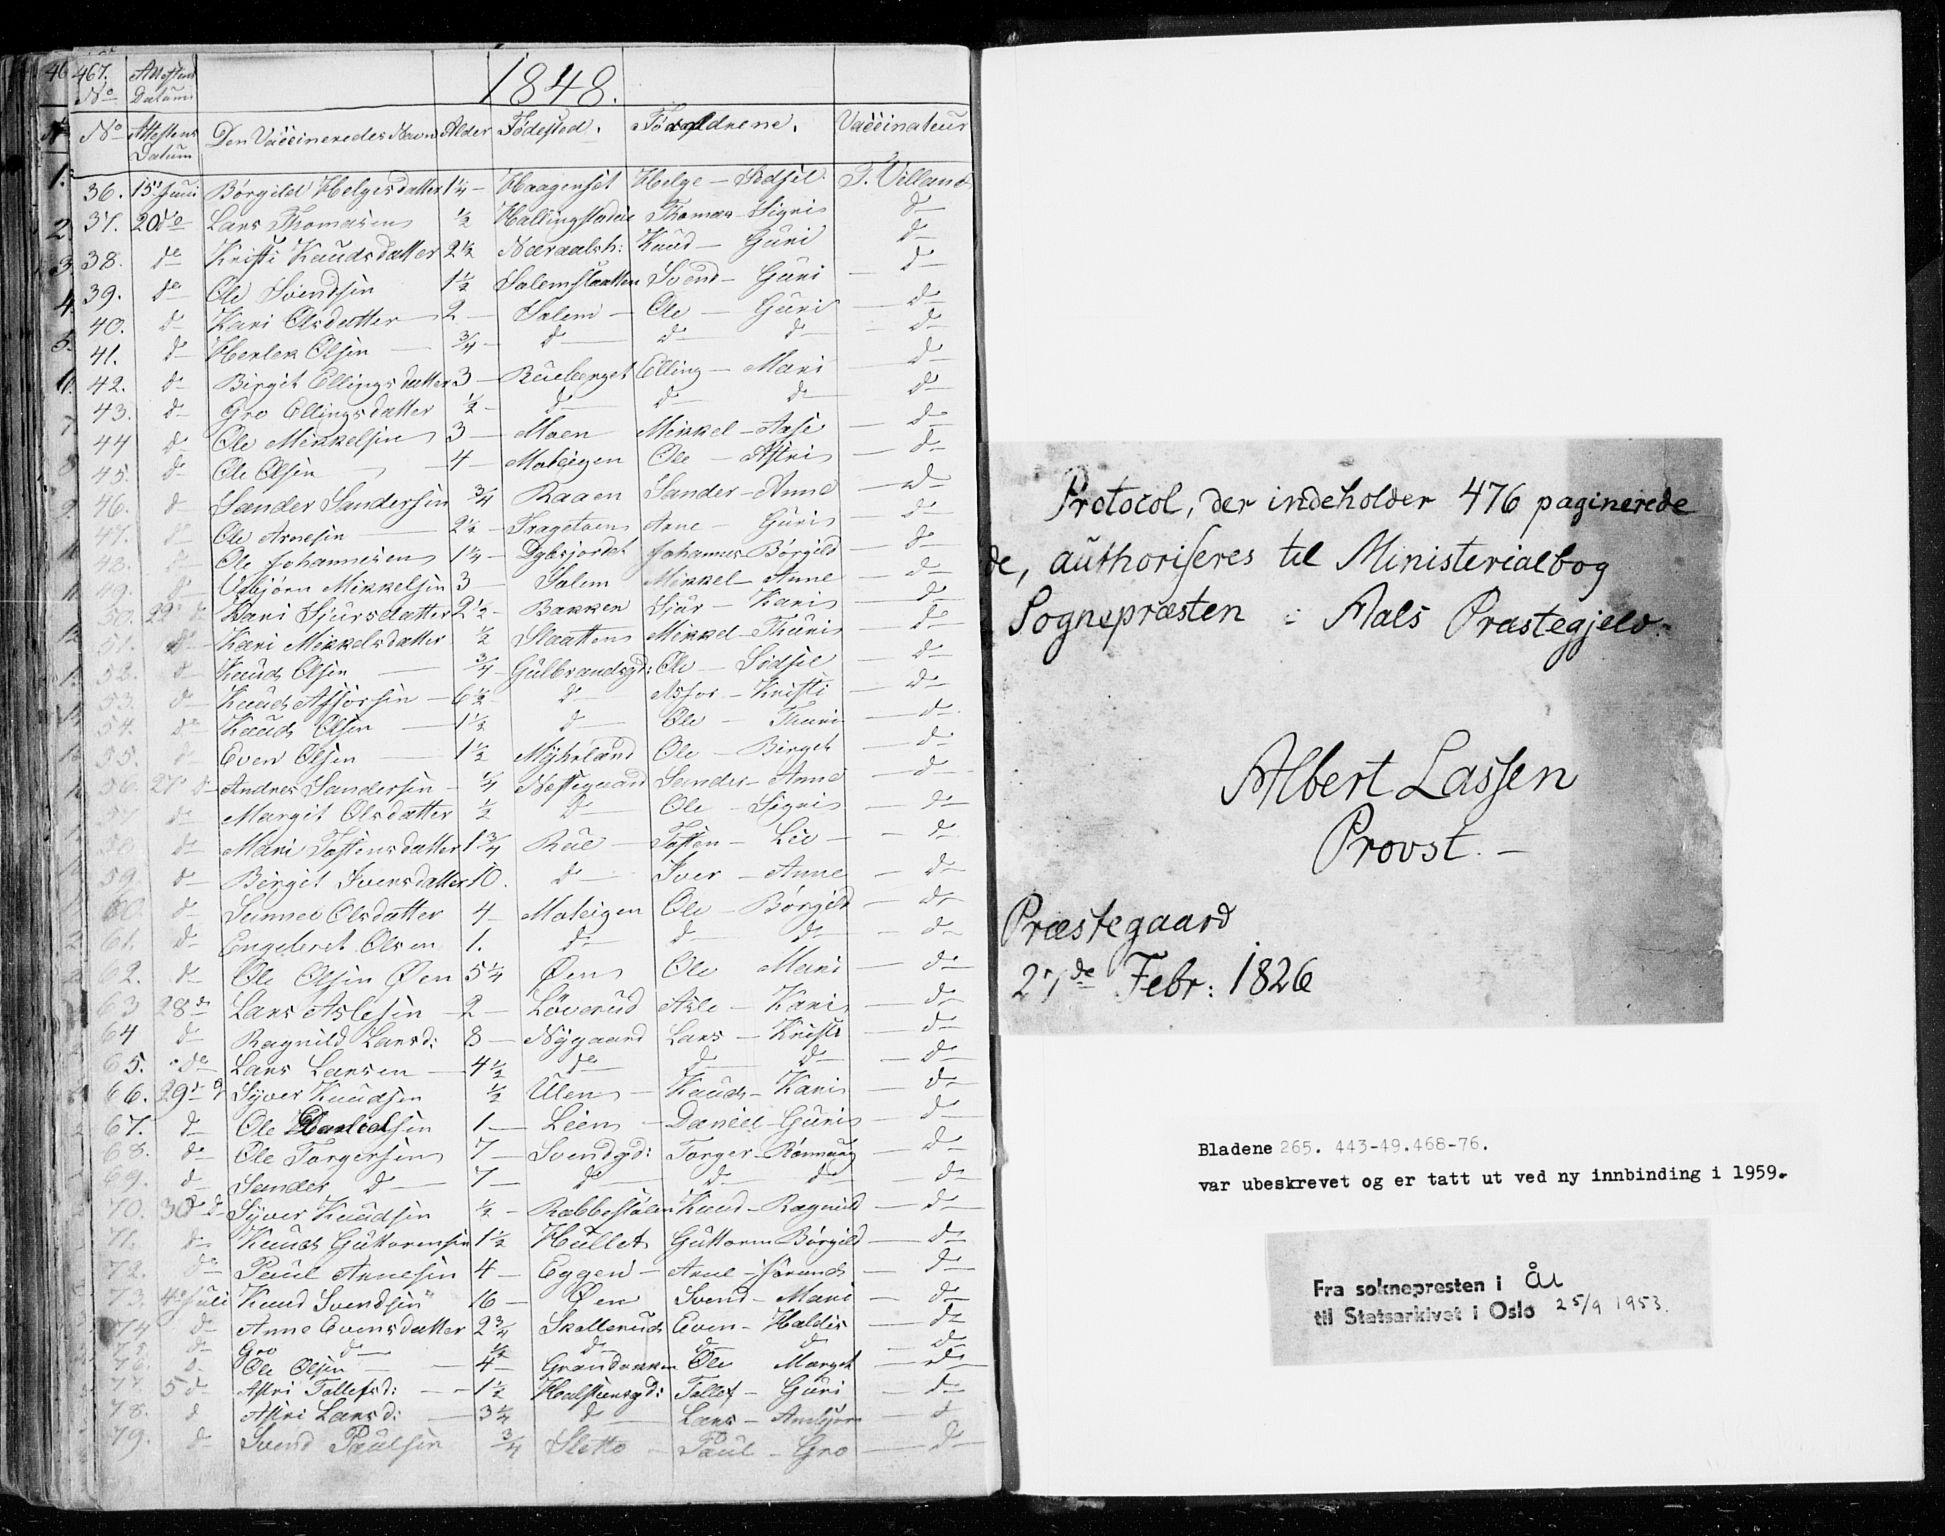 46 467. Attestens 1848.
No Datum
No Attestens Datum Den Vaccineredes Navn Alder Fødested. Forældrene. Vaccinateur
36. 15de Juni Børgild Helgesdatter 1 1/4 - Haagenset Helge - Sidsel T. Villand
37. 20 do Lars Thomasen 1/2 Hallingstadeie Thomas - Sigri d-
38. do Kristi Knudsdatter 2 1/2 Næraalsh: Knud - Guri d-
39. do Ole Svendsen 1 1/2 Salemslaatten Svend - Guri - d-
40. d- Kari Olsdatter 2 - Salem - Ole - Guri - d-
41. d- Herlek Olsen - 3/4 - d- d- d- - d-
42. d- Birgit Ellingsdatter 3 - Rueberget Elling - Mari - d-
43. d- Gro Ellingsdatter 1/2 - d- d- d- d-
44 d- Ole Mikkelsen 3 - Moen Mikkel - Aase - d-
45. d- Ole Olsen - 4 - Moleigen Ole - Astri - d-
46. d- Sander Sandersen 3/4 Raaen Sander - Anne - d-
47. d- Ole Arnesen 2 1/2 - Arne - Guri - d-
48. d- Ole Johannesen 1 1/4 - Dybsjordet Johannes Børgild - d-
49. d- Mikkelsen 3 - Salem Mikkel - Anne - d-
50. 22de d- Kari Sjursdatter 2 1/2 - Bakken Sjur - Kari - d-
51. d- Kari Mikkelsdatter 1/2 Slaatten Mikkel - Thuri - d-
52. d- Knud Olsen - 3/4 - Gulbrandsgd: Ole - Sidsel - d-
53. d- Knud Assorsen - 6 1/2 - d- Assor - Kristi - d-
54. do Knud Olsen - 1 1/2 d- Ole - Thuri - d-
55. d- Even Olsen - 1 1/2 Myhrland Ole - Birget - d-
56. 27de d- Andres Sandersen - 1/4 Nessegaard Sander - Anne - d-
57 d- Margit Olsdatter 1/2 d- Ole - Sigri - d-
58 d- Mari Tostensdatter 1 3/4 Rue - Tosten - Liv - - d-
59. d- Birgit Iversdatter 10. d- Iver - Anne - d-
60. d- Sunnev Olsdatter 4 - Moleigen Ole - Børgild - d-
61. d- Engebret Olsen 1. d- d- d- - d-
62. d- Ole Olsen Øen 5 1/4 Øen Ole Mari - d-
63 28 do Lars Aslesen - 2 - Løverud Asle - Kari - d-
64 d- Ragnild Larsd: 8 - Nygaard Lars - Kristi - d-
65. do Lars Larsen - 4 1/2 do d- d- - d-
66. 29de d Syver Knudsen 1/2 Ulen - Knud - Kari d-
67. d- Ole 1 - Lien - Daniel - Guri - d-
68. do Ole Torgersen 7 - Svendgd: Torger - Rønnaug - d-
69. d- Sander d- 7 - d- d- d- d-
70. 30de d- Syver Knudsen 1/2 - Rabbestølen Knud - Ragnild - d-
71. d- Knud Guttormsen 1 1/2 Hullet Guttorm Børgild - d-
72. do Paul Arnesen 4 - Eggen - Arne - Jorand - d-
73. 4de Juli Knud Svendsen 16 - Øen Svend - Mari - d-
74 d- Anne Evensdatter 2 3/4 Skallerud Even - Haldis - d-
75. d- Gro d- 1/2 d- d- d d-
76. d- Ole Olsen - - 4 - Grøndokken Ole Marget - d-
77. 5 d- Astri Tollefsd: - - 1 1/2 Halstensgd: Tollef - Guri - d-
78. d Astri Larsd: - 3 1/4 d- Lars - Ambjør - d
79. d- Svend Paulsen 3/4 Sletto - Paul - Gro - d-
Protocol, der indeholder 476 paginerede
de, authoriseres til Ministerialbog
Sognepræsten i Aals Præstegjeld.
Albert Lassen
Provst. -
Præstegaard
27de Febr: 1826
Bladene 265. 443-49.468-76.
var ubeskrevet og er tatt ut ved ny innbinding i 1959.
Fra soknepresten i Ål
til Statsarkivet i Oslo 25/9 1953.